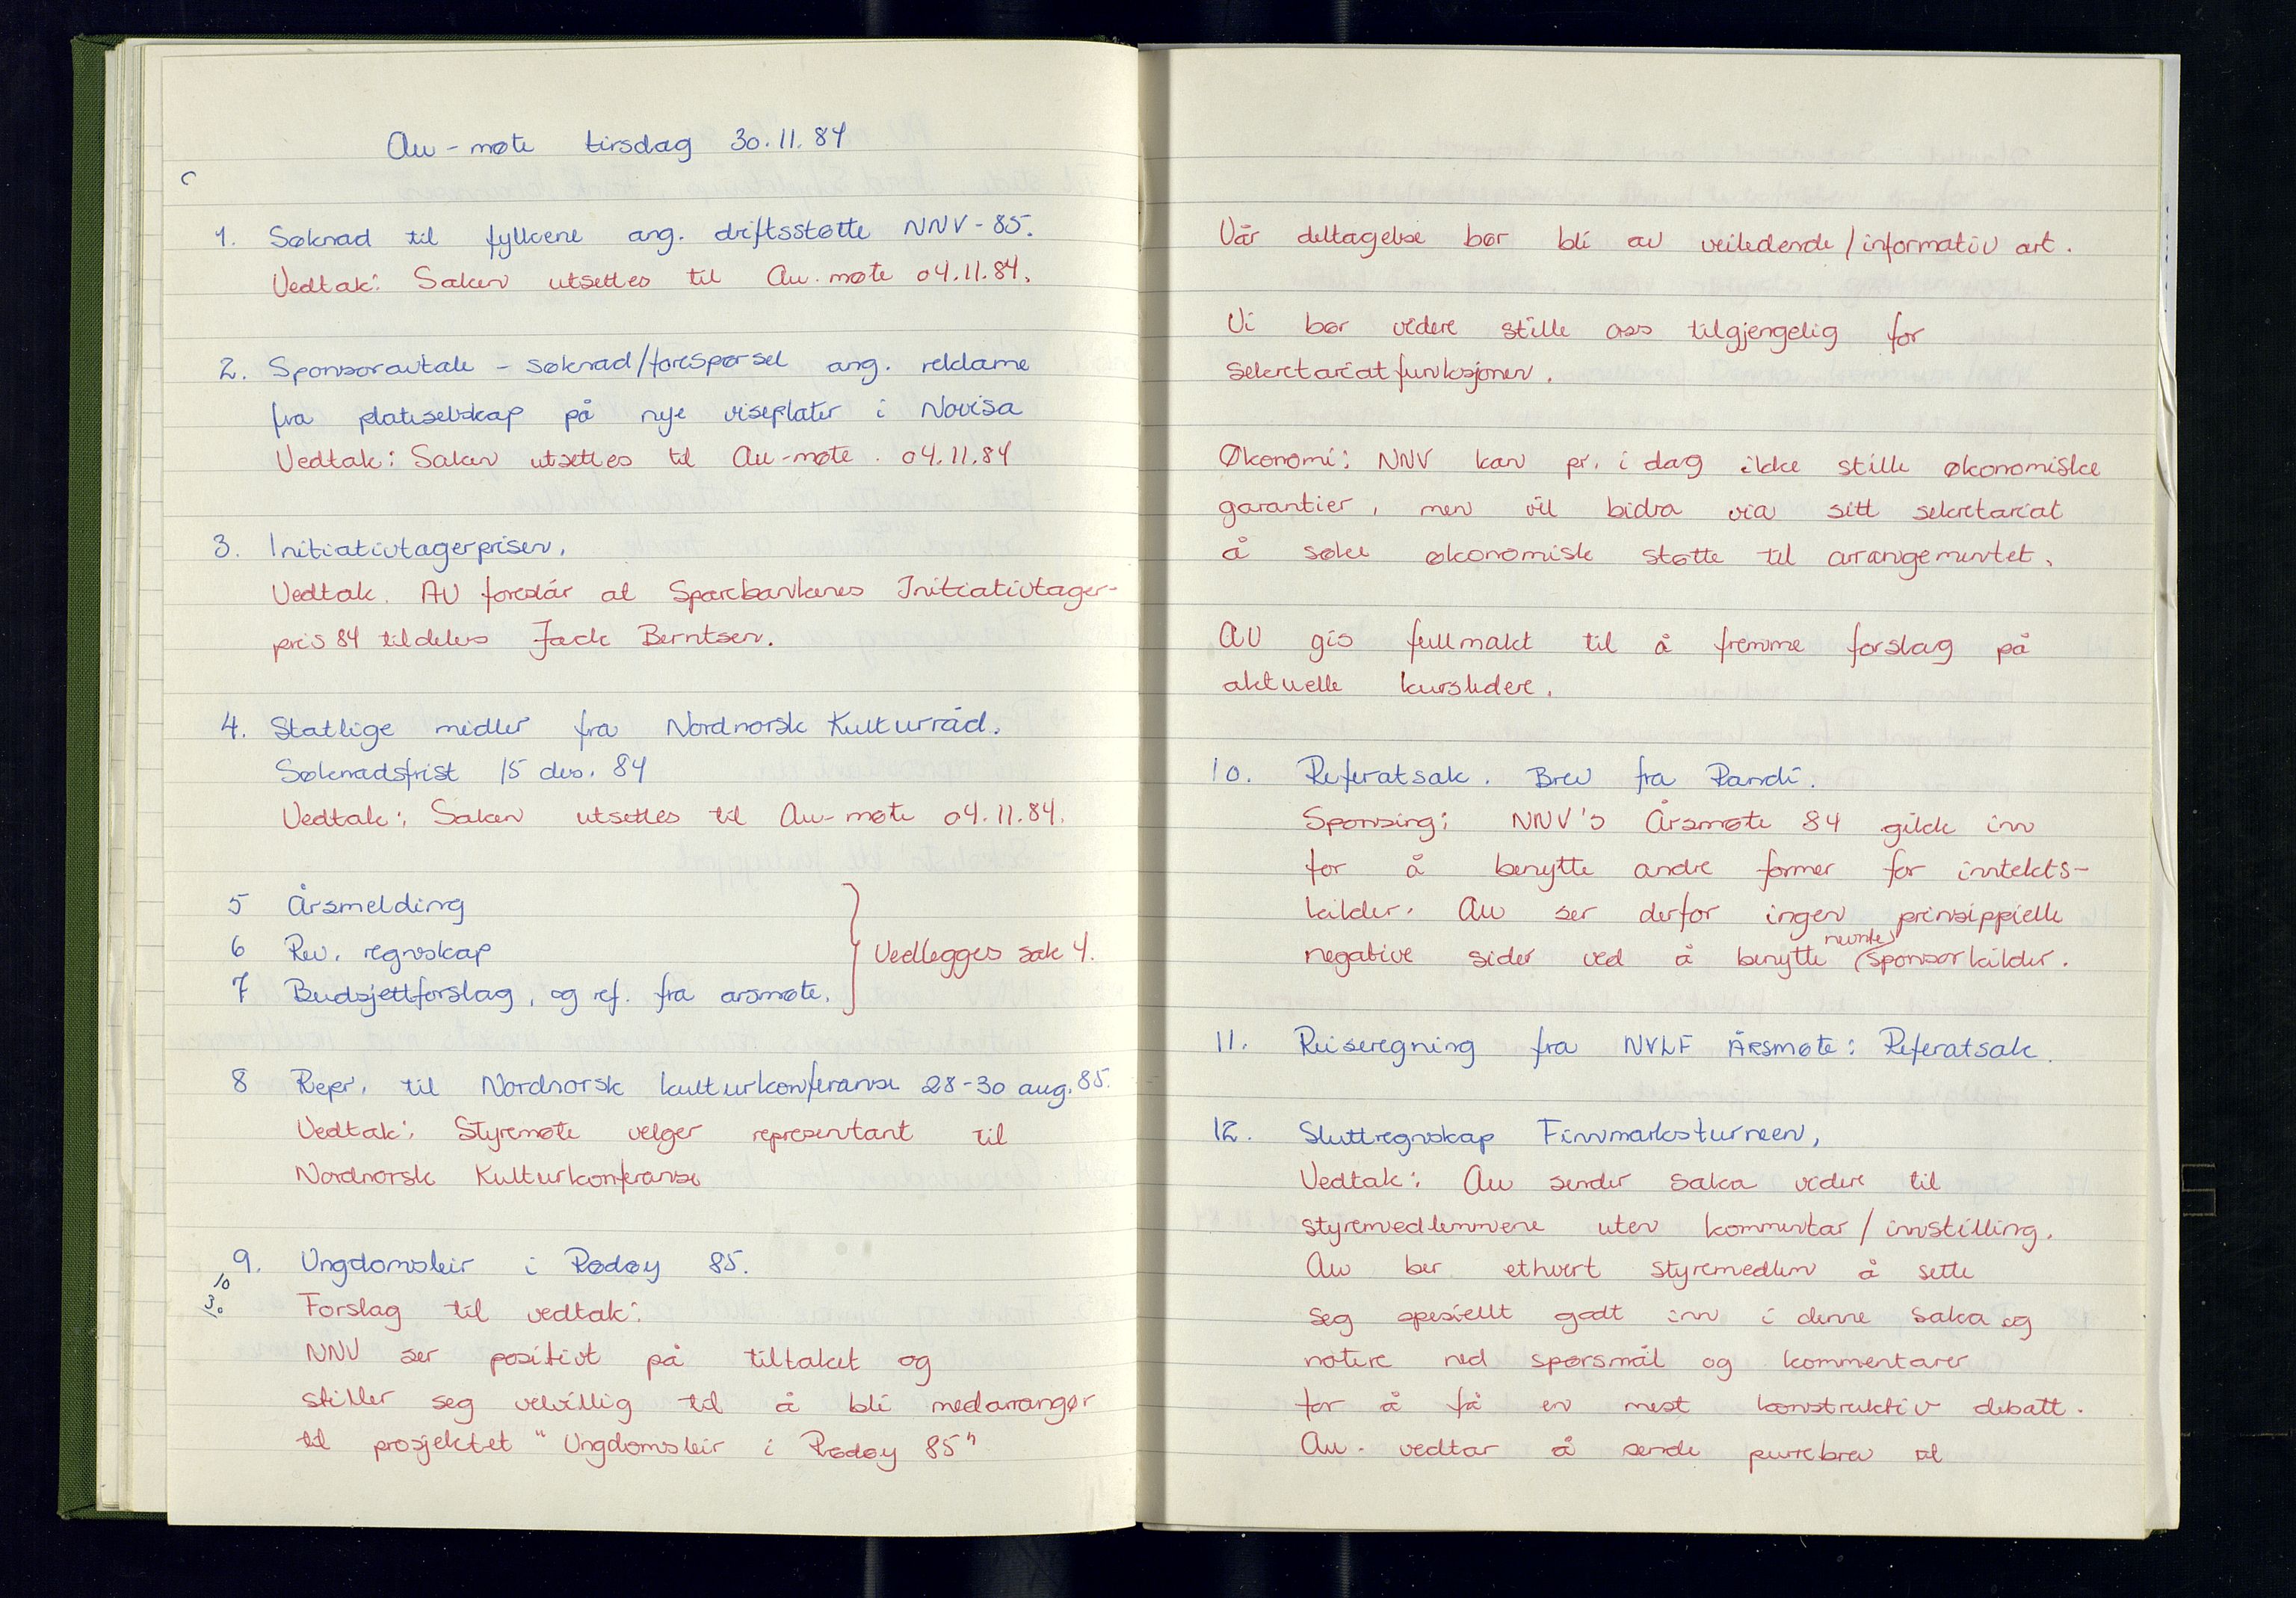 Au-møte tirsdag 30.11.84
1. Søknad til fylkene ang. driftsstøtte NNV-85.
Vedtak: Saken utsettes til Au.møte 04.11.84.
2. Sponsoravtale - søknad/forespørsel ang. reklame
fra plateselskap på nye viseplater i Novisa
Vedtak: Saken utsettes til Au-møte. 04.11.84
3. Initiativtagerprisen.
Vedtak. AU foreslår at Sparebankenes Initiativtager-
pris 84 tildeles Jack Berntsen.
4. Statlige midler fra Nordnorsk Kulturråd.
Søknadsfrist 15 des. 84
Vedtak: Saken utsettes til Au-møte 04.11.84.
5 Årsmelding
6 Rev. regnskap
7 Budsjettforslag, og ref. fra årsmøte.
Vedlegges sak 4.
8 Repr. til Nordnorsk kulturkonferanse 28-30 aug. 85.
Vedtak: Styremøte velger representant til
Nordnorsk Kulturkonferanse
9. Ungdomsleir i Rødøy 85.
10
30
Forslag til vedtak:
NNV ser positivt på tiltaket og
stiller seg velvillig til å bli medarrangør
til prosjektet "Ungdomsleir i Rødøy 85"
Vår deltagelse bør bli av veiledende/informativ art.
Vi bør videre stille oss tilgjengelig for
sekretariatfunksjonen.
Økonomi: NNV kan pr. i dag ikke stille økonomiske
garantier, men vil bidra via sitt sekretariat
å søke økonomisk støtte til arrangementet.
AU gis fullmakt til å fremme forslag på
aktuelle kursledere.
10. Referatsak. Brev fra Randi.
Sponsing: NNV's Årsmøte 84 gikk inn
for å benytte andre former for inntekts-
kilder. Au ser derfor ingen prinsippielle
negative sider ved å benytte (nevnte) sponsorkilder.
11. Reiseregning fra NVLF ÅRSMØTE: Referatsak.
12. Sluttregnskap Finnmarksturneen,
Vedtak: Au sender saka videre til
styremedlemmene uten kommentar/innstilling.
Au ber ethvert styremedlem å sette
seg spesiellt godt inn i denne saka og
notere ned spørsmål og kommentarer
for å få en mest konstruktiv debatt.
Au. vedtar å sende purrebrev til